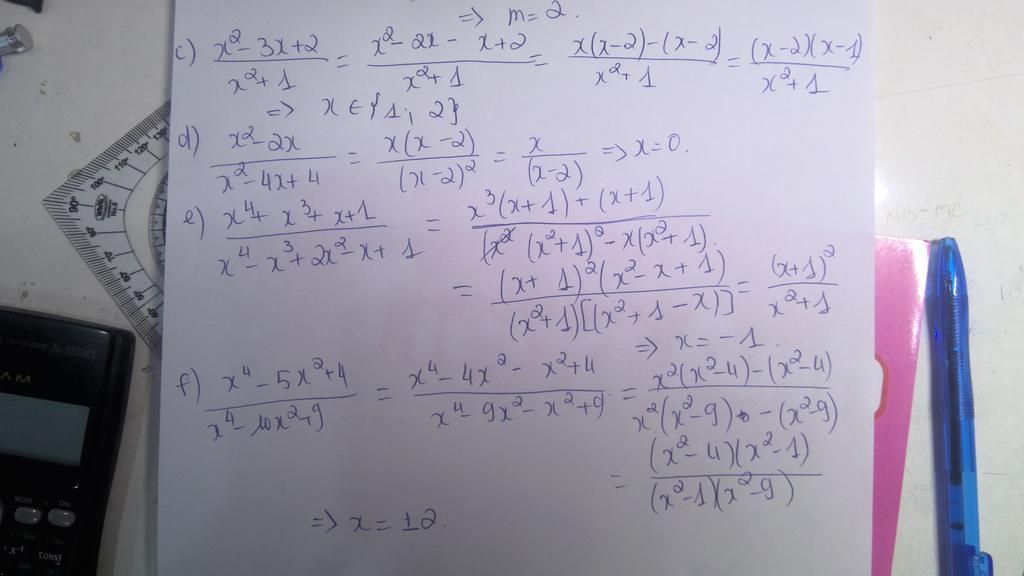 => m = 2.
c) (x² - 3x + 2)/(x² + 1) = (x² - 2x - x + 2)/(x² + 1) = (x(x-2) - (x-2))/(x² + 1) = ((x-2)(x-1))/(x² + 1)
=> x ∈ {1; 2}
d) (x² - 2x)/(x² - 4x + 4) = (x(x-2))/((x-2)²) = x/((x-2)) => x = 0.
e) (x⁴ + x³ + x + 1)/(x⁴ - x³ + 2x² - x + 1) = (x³(x+1) + (x+1))/((x²+1)² - x(x²+1))
= ((x+1)²(x² - x + 1))/((x²+1)[(x² + 1 - x)]) = ((x+1)²)/(x² + 1)
=> x = -1.
f) (x⁴ - 5x² + 4)/(x⁴ - 10x² + 9) = (x⁴ - 4x² - x² + 4)/(x⁴ - 9x² - x² + 9) = (x²(x² - 4) - (x² - 4))/(x²(x² - 9) - (x² - 9))
= ((x² - 4)(x² - 1))/((x² - 1)(x² - 9))
=> x = ±2.
MODE
ON